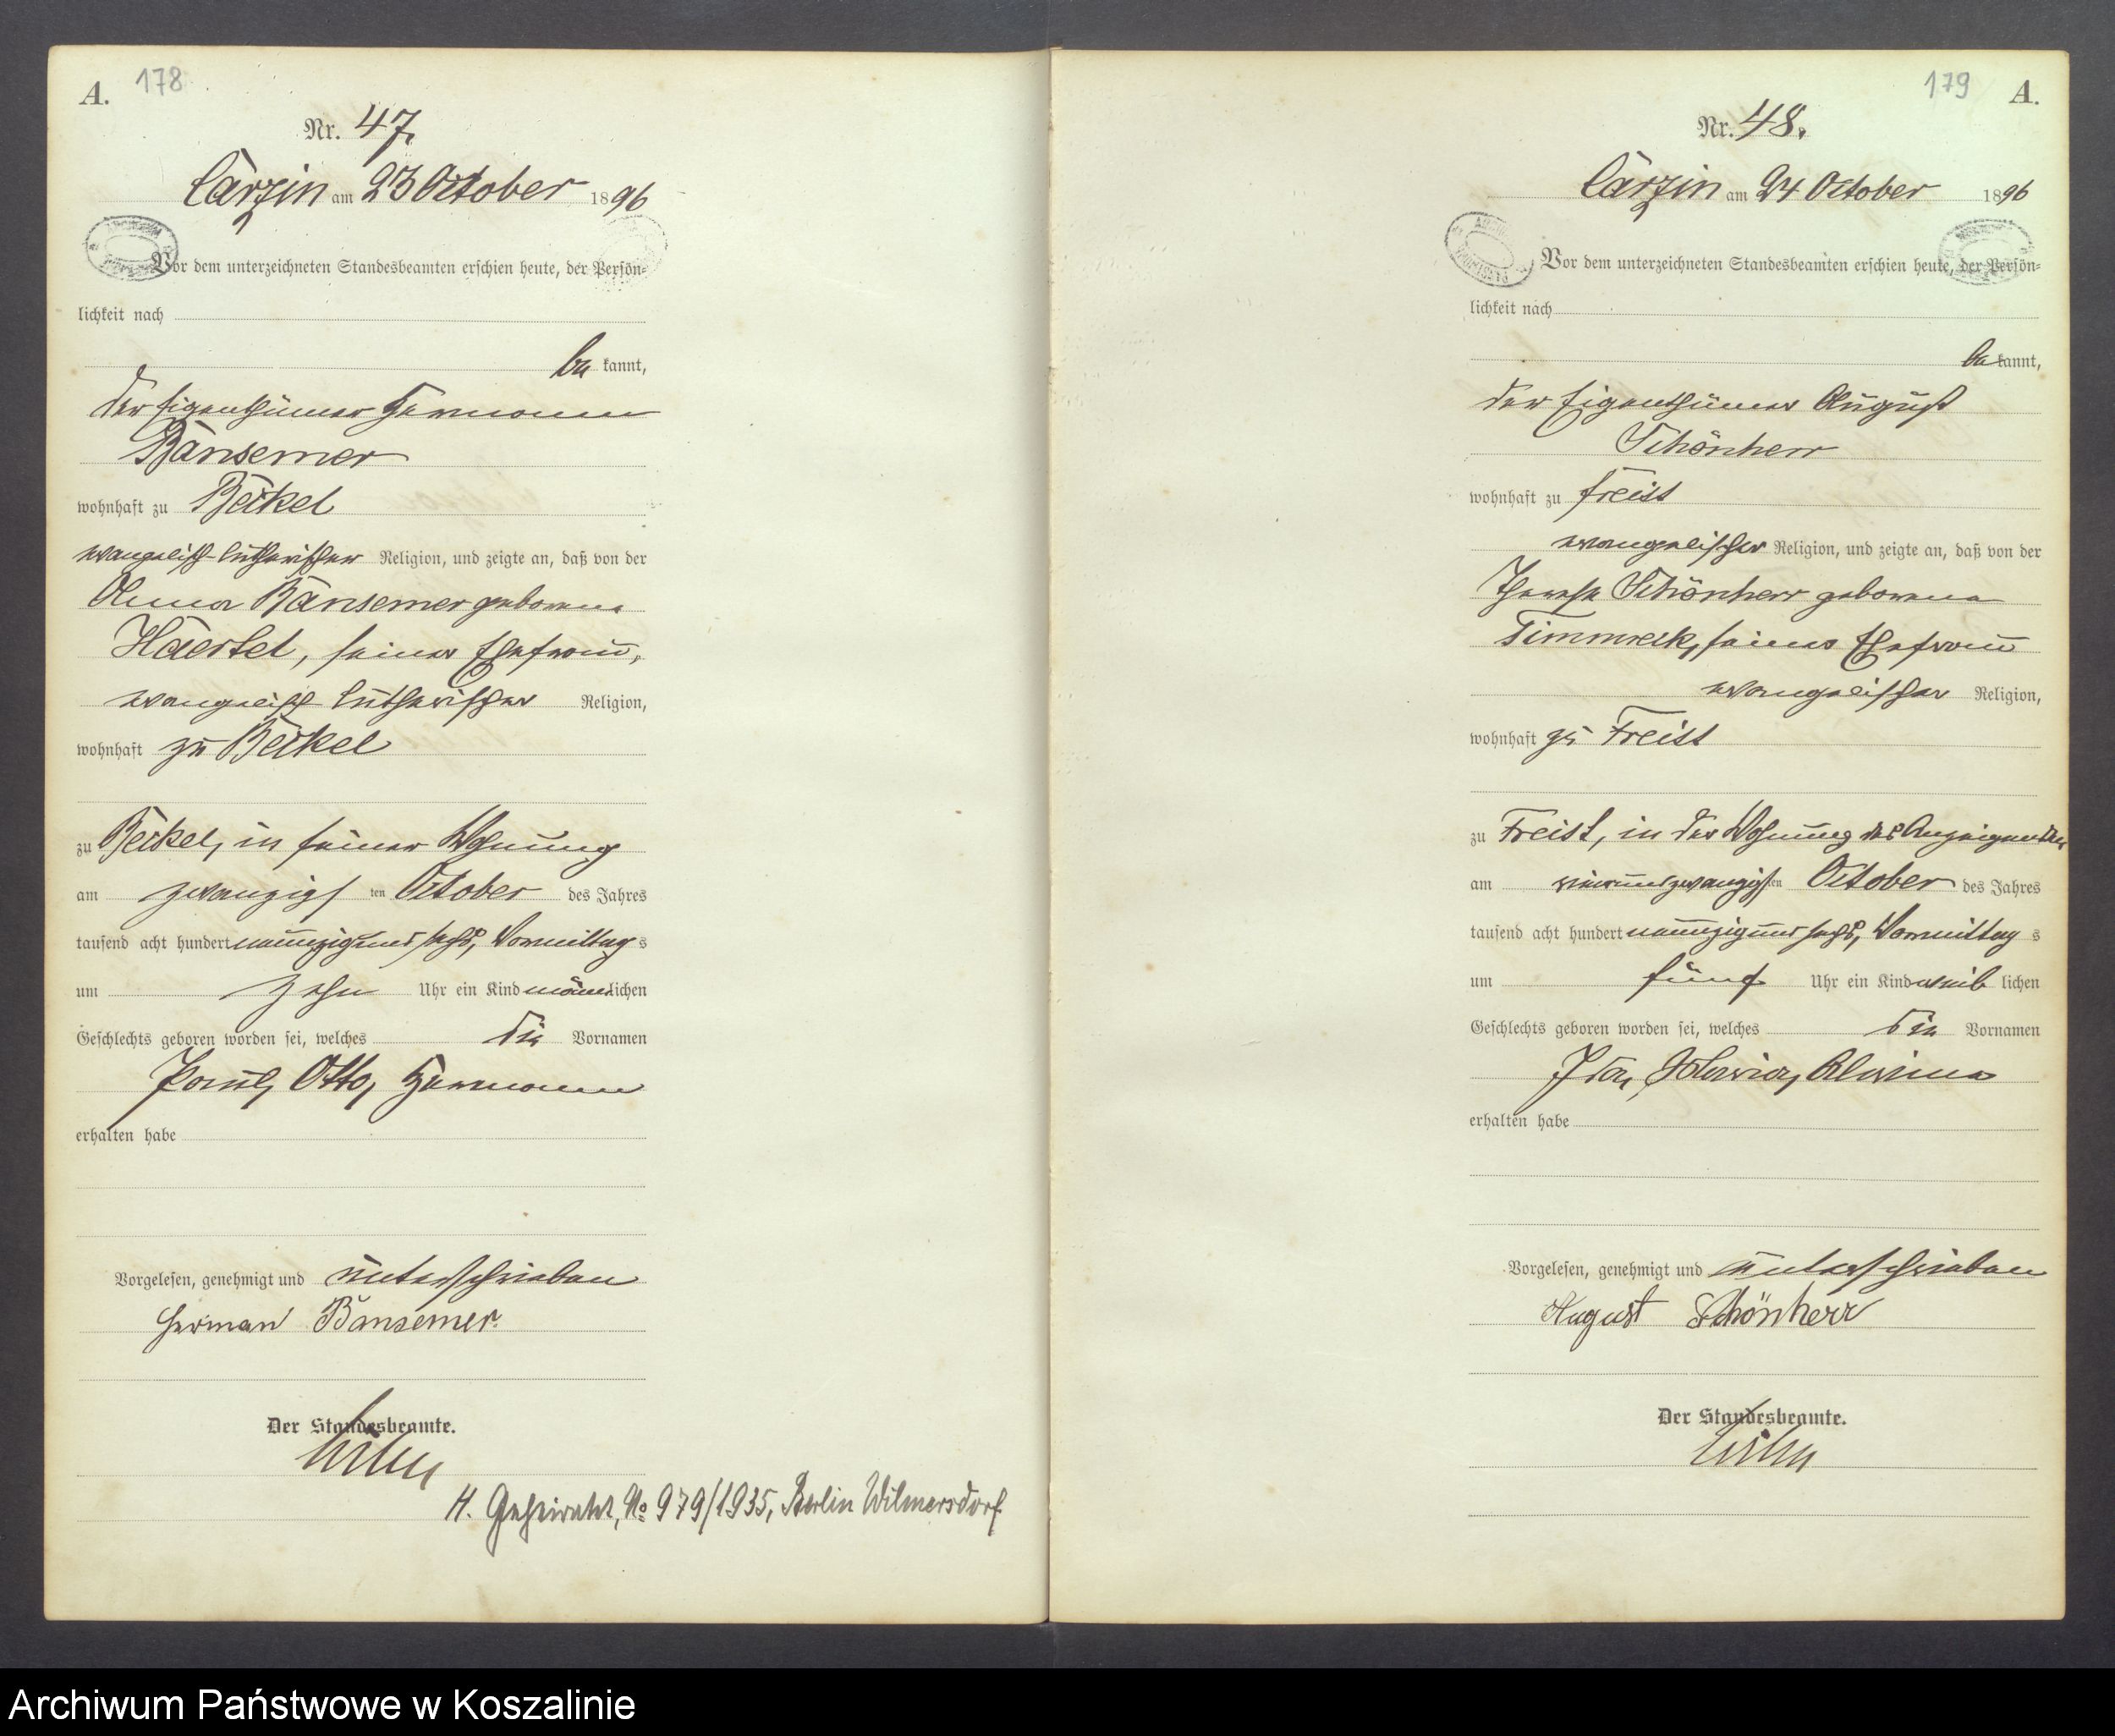 A. 178
Nr. 47.
Carzin am 23 October 1896
Vor dem unterzeichneten Standesbeamten erschien heute, der Persön-
lichkeit nach
be kannt,
der Eigenthümer Hermann
Bansemer
wohnhaft zu Beckel
evangelisch-lutherischer Religion, und zeigte an, daß von der
Anna Bansemer geborene
Haertel, seiner Ehefrau,
evangelisch lutherischer Religion,
wohnhaft zu Beckel
zu Beckel, in seiner Wohnung
am zwanzigsten October des Jahres
tausend acht hundert neunzig und sechs, Vormittags
um zehn Uhr ein Kind männlichen
Geschlechts geboren worden sei, welches die Vornamen
Paul, Otto, Hermann
erhalten habe
Vorgelesen, genehmigt und unterschrieben
Herman Bansemer.
Der Standesbeamte.
H. Geheiratet, No 979/1935, Berlin Wilmersdorf
179 A.
Nr. 48.
Carzin am 24 October 1896
Vor dem unterzeichneten Standesbeamten erschien heute, der Persön-
lichkeit nach
be kannt,
der Eigenthümer August
Schönherr
wohnhaft zu Freist
evangelischer Religion, und zeigte an, daß von der
Therese Schönherr geborene
Timmreck, seiner Ehefrau
evangelischer Religion,
wohnhaft zu Freist
zu Freist, in der Wohnung des Anzeigenden
am einundzwanzigsten October des Jahres
tausend acht hundert neunzig und sechs, Vormittag s
um fünf Uhr ein Kind weib lichen
Geschlechts geboren worden sei, welches die Vornamen
Ida, Alwina
erhalten habe
Vorgelesen, genehmigt und unterschrieben
August Schönherr
Der Standesbeamte.
Archiwum Państwowe w Koszalinie